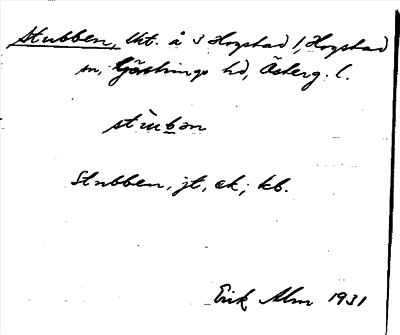 Stubben, lht. å 3 Hogstad 1, Hogstad
sn, Göstrings hd, Österg. l.
stùbən
Stubben, jt, ek; kb.
Erik Alm 1931